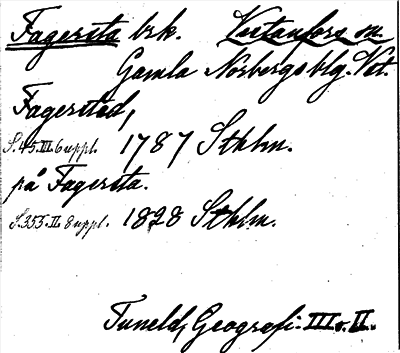 Fagersta brk. Västanfors sn.
Gamla Norbergs blg. Vst.
Fagersted,
S. 45. III. 6 uppl. 1787 Sthlm.
på Fagersta.
S. 355. II. 8 uppl. 1828 Sthlm.
Tuneld, Geografi. III o. II.